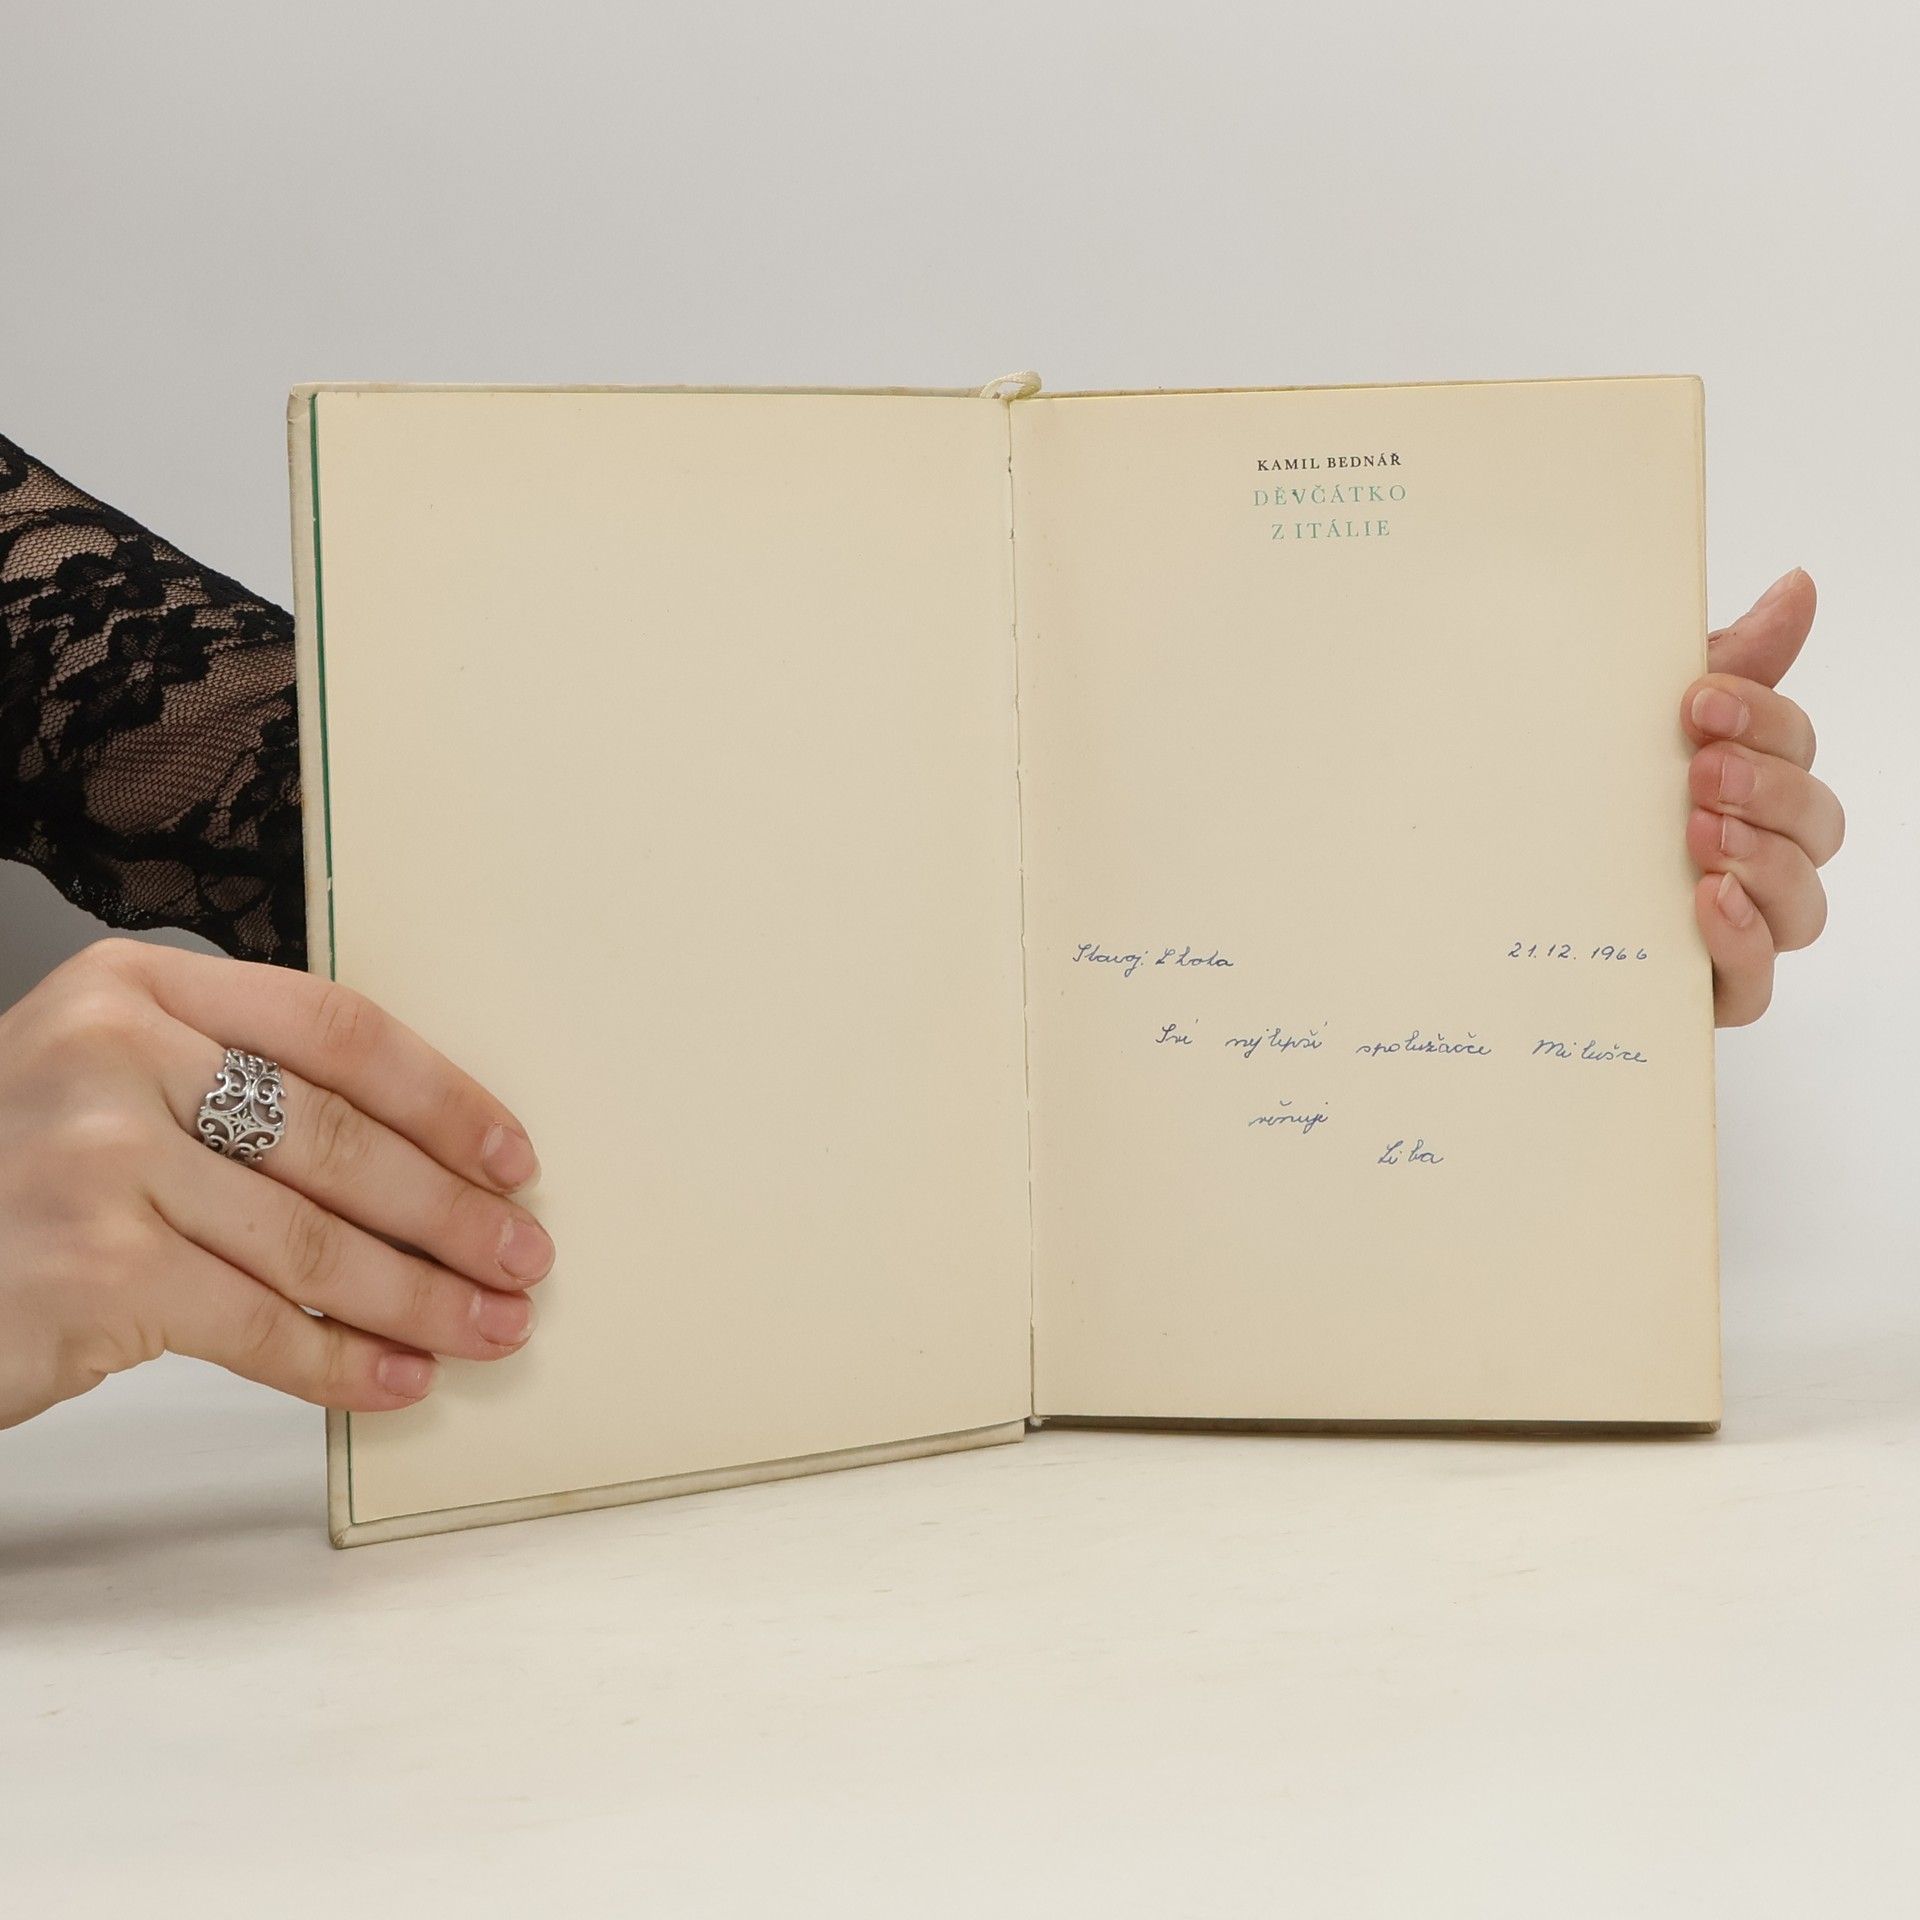 KAMIL BEDNÁŘ
DĚVČÁTKO
Z ITÁLIE
Stavoj. Lhota 21.12.1966
Své nejlepší spolužačce Milušce
věnuji
Liba